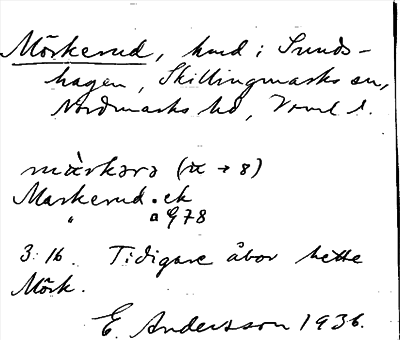 Mörkerud, hmd i Sunds-
hagen, Skillingmarks sn,
Nordmarks hd, Vrml l.
màrkərə
Markerud. ek
" " G78
3:16. Tidigare åbor hette
Mörk.
E. Andersson 1936.